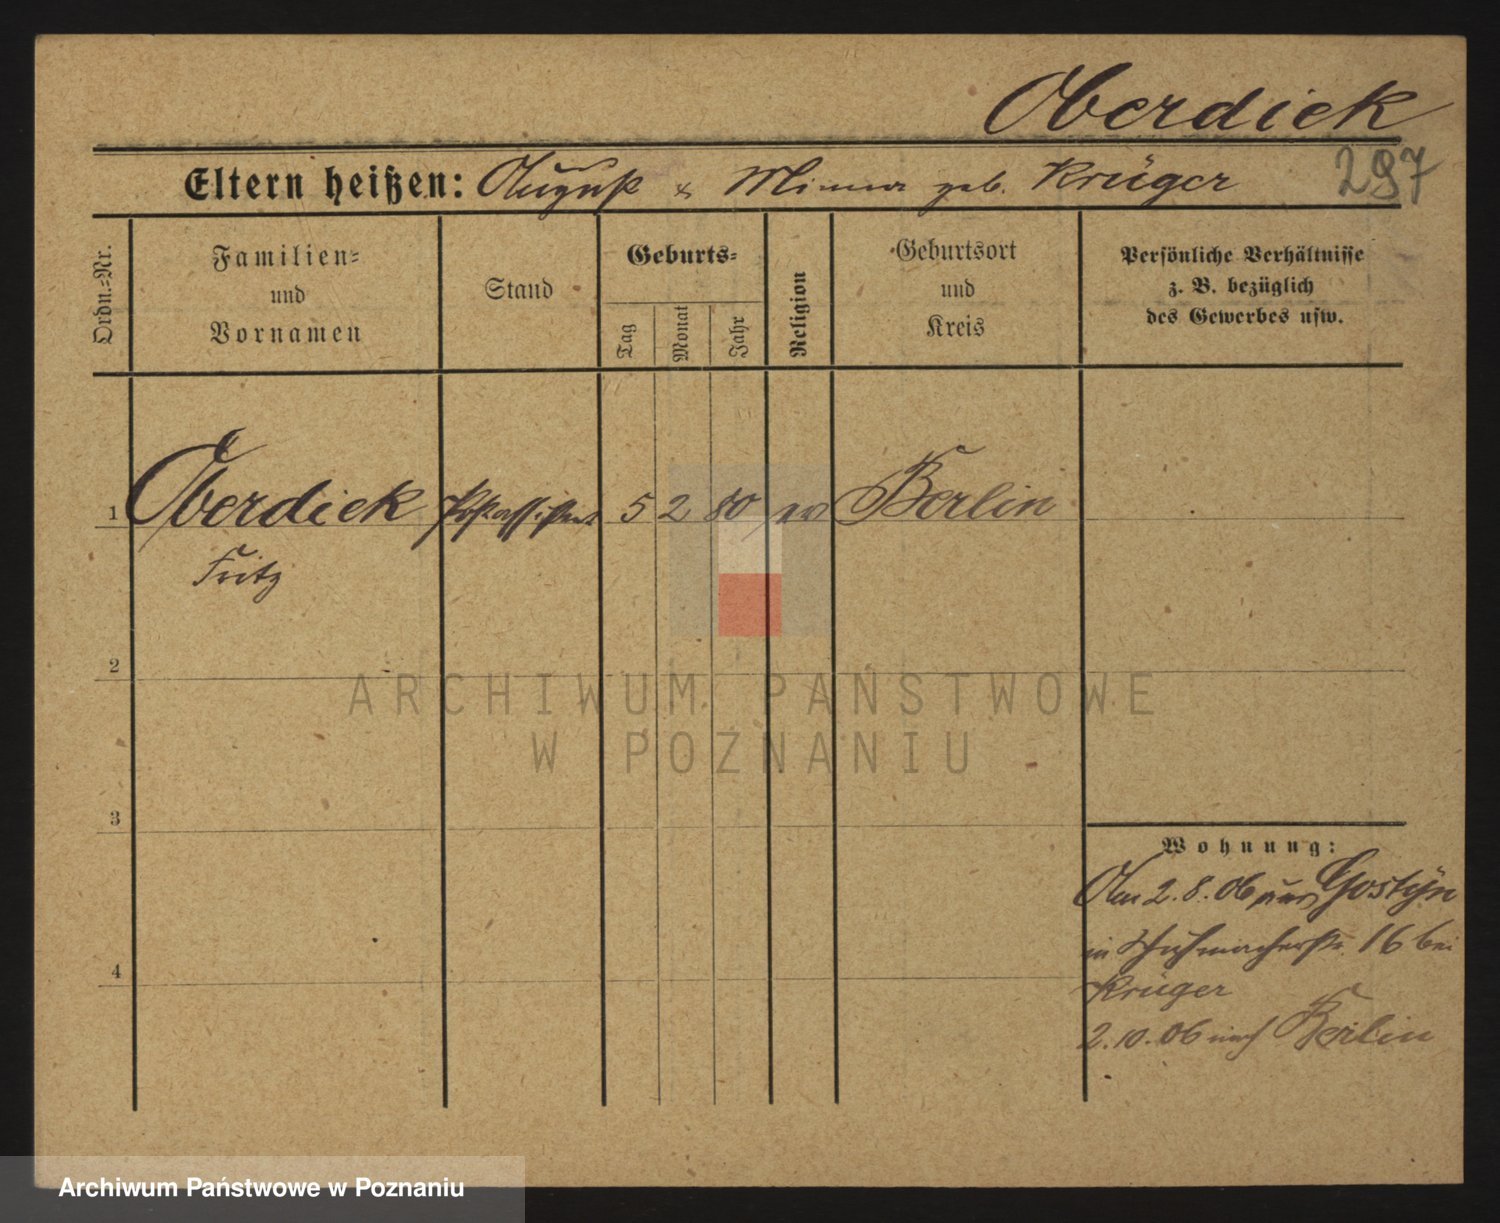 Oberdiek
Eltern heißen: August & Minna geb. Krüger
297
Ordn.=Nr.
Familien=
und
Vornamen
Stand
Geburts=
Tag
Monat
Jahr
Religion
Geburtsort
und
Kreis
Persönliche Verhältnisse
z. B. bezüglich
des Gewerbes usw.
1 Oberdiek Postassistent 5 2 80 ev Berlin
Fritz
2
ARCHIWUM PAŃSTWOWE
W POZNANIU
3
Wohnung:
Am 2.8.06 aus Gostyn
in Schuhmacherstr. 16 bei
4
Krüger
2.10.06 nach Berlin
Archiwum Państwowe w Poznaniu